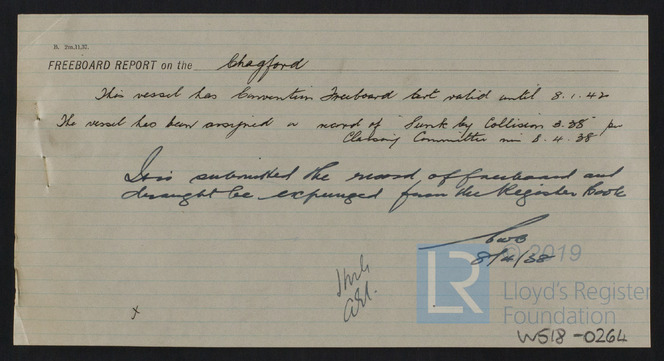 B. 2m.11.37.
FREEBOARD REPORT on the Chagford
This vessel has Convention Freeboard Cert valid until 8.1.42
The vessel has been assigned a record of "Sunk by Collision 3.38" per
Classing Committee min 5.4.38
It is submitted the record of freeboard and
draught be expunged from the Register Book
8/4/38
© 2019
LR
Lloyd's Register
Foundation
W518-0264
x